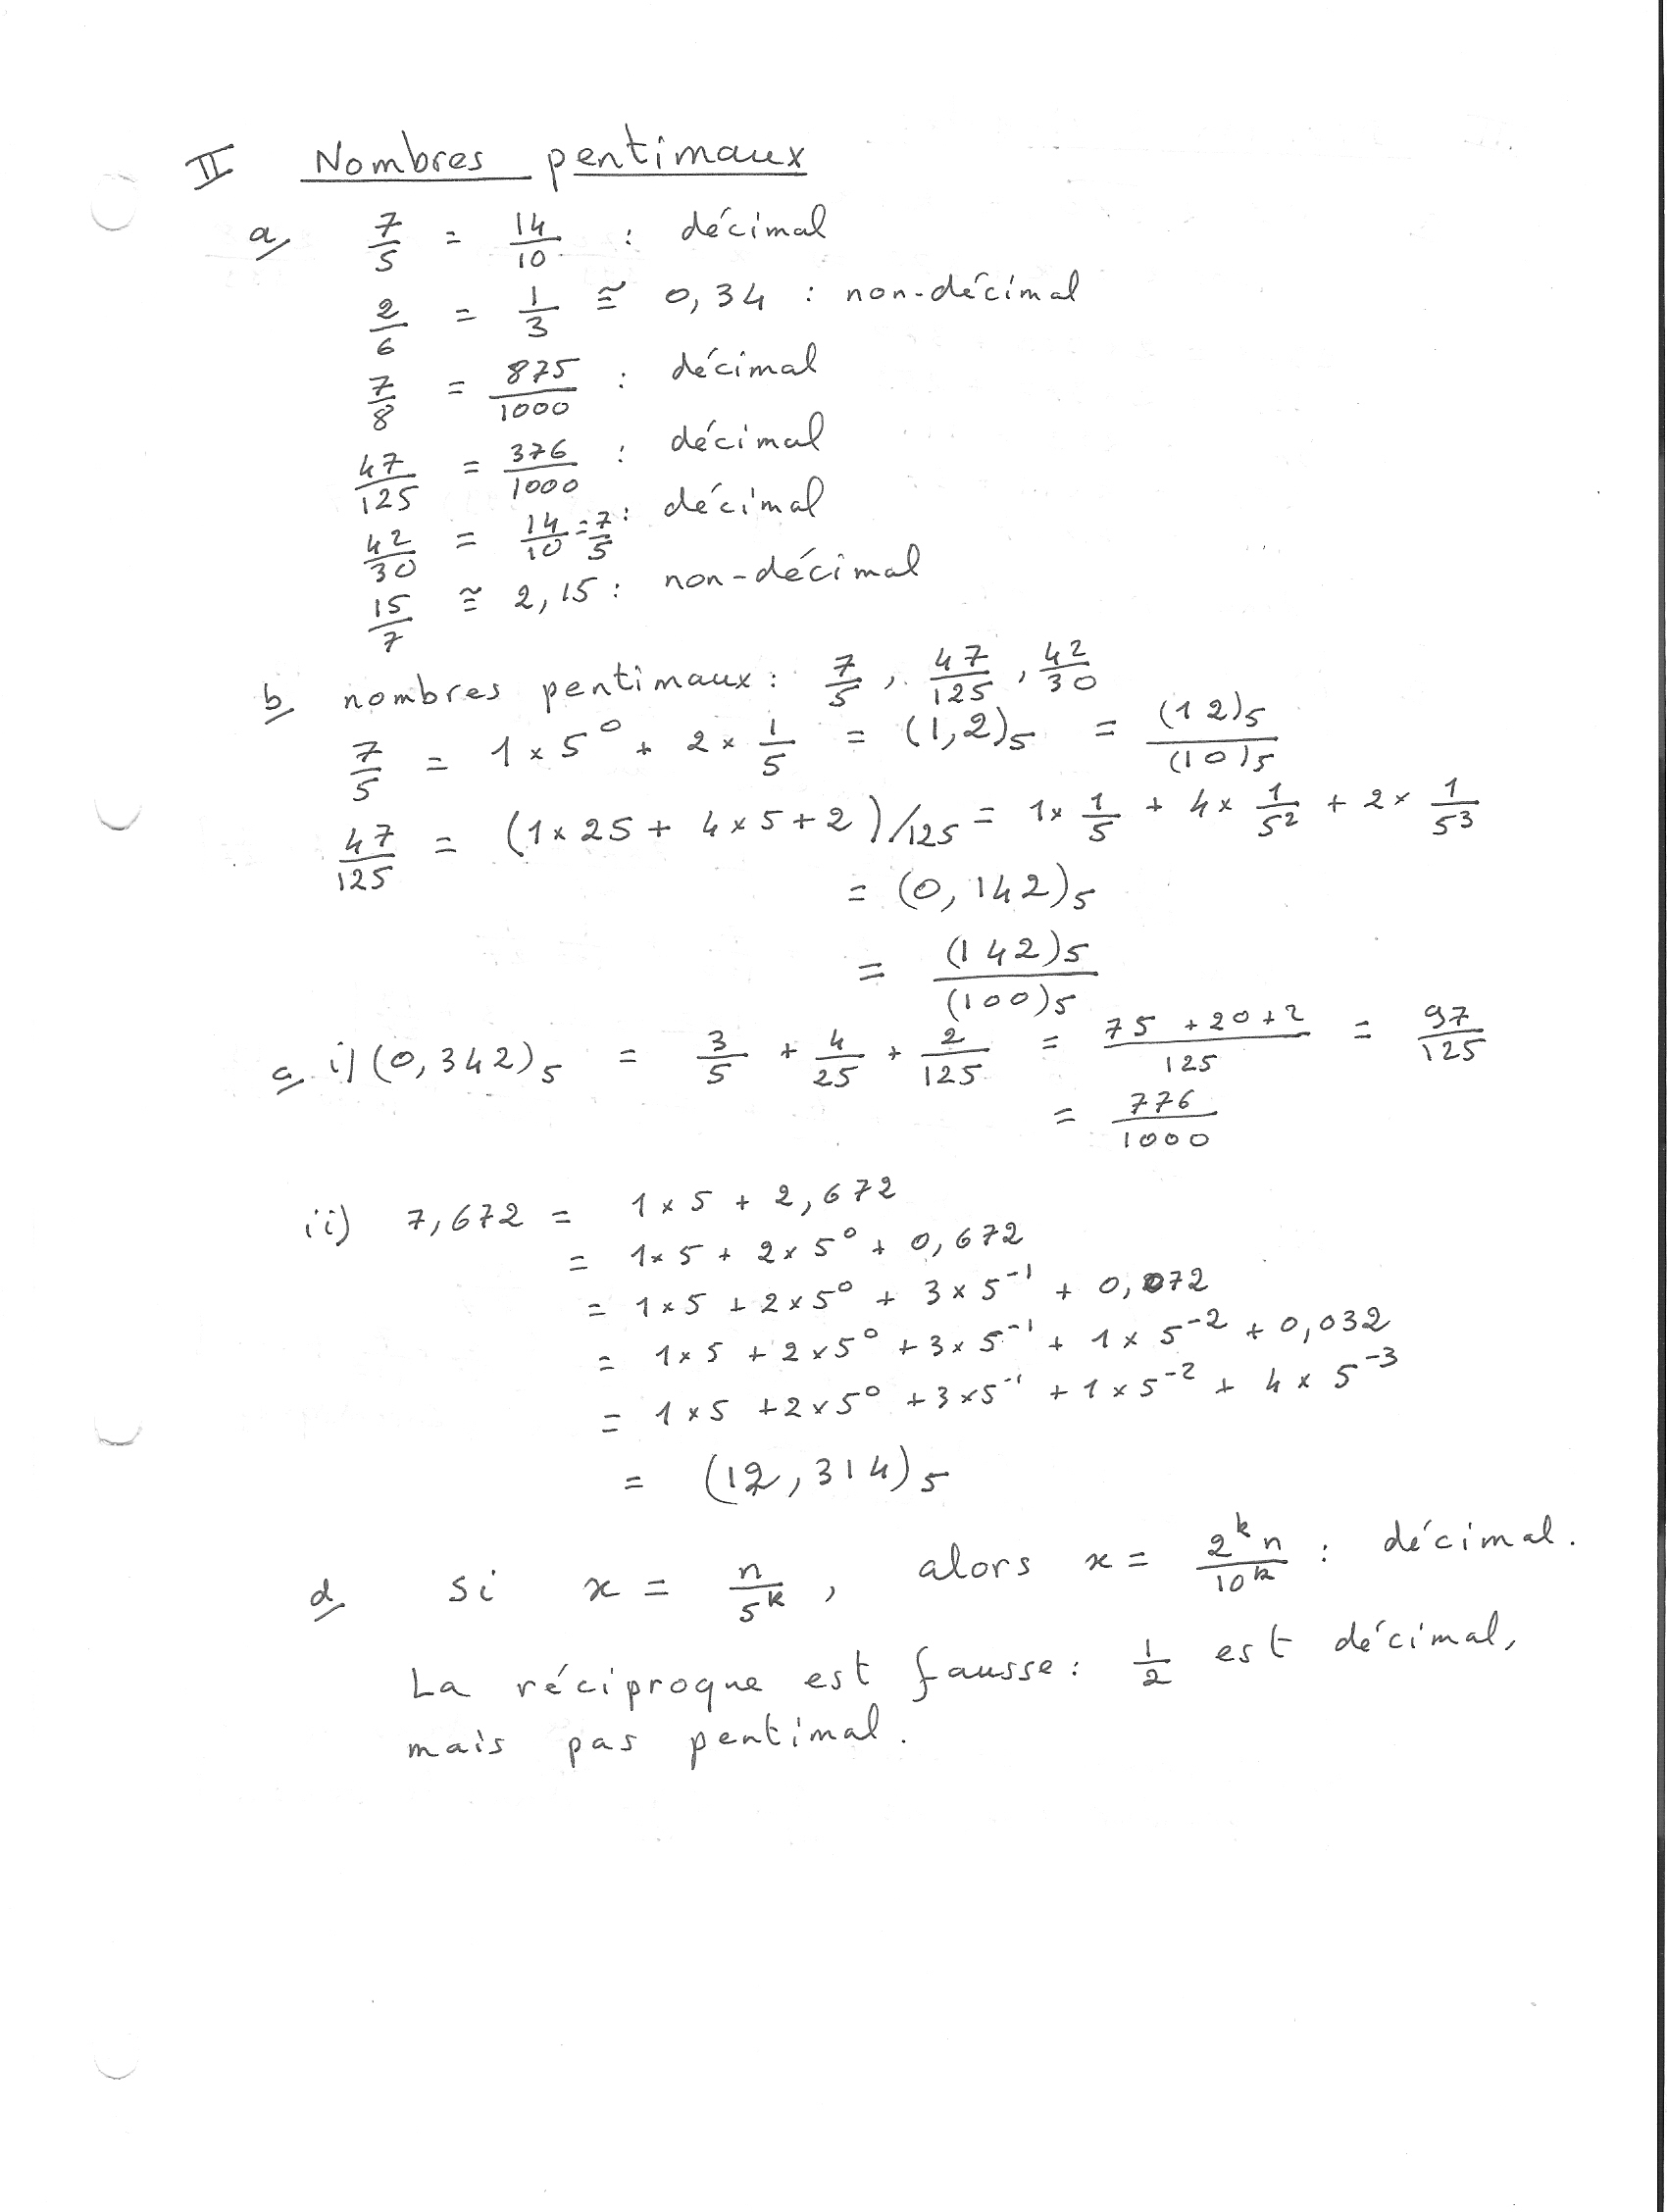 II Nombres pentimaux
a/ 7/5 = 14/10 : décimal
2/6 = 1/3 ≅ 0,34 : non-décimal
7/8 = 875/1000 : décimal
47/125 = 376/1000 : décimal
42/30 = 14/10 = 7/5 : décimal
15/7 ≅ 2,15 : non-décimal
b/ nombres pentimaux : 7/5, 47/125, 42/30
7/5 = 1 × 5⁰ + 2 × 1/5 = (1,2)₅ = (12)₅/(10)₅
47/125 = (1×25 + 4×5+2)/125 = 1× 1/5 + 4× 1/5² + 2× 1/5³
= (0,142)₅
= (142)₅/(100)₅
c/ i) (0,342)₅ = 3/5 + 4/25 + 2/125 = (75 + 20 + 2)/125 = 97/125
= 776/1000
ii) 7,672 = 1×5 + 2,672
= 1×5 + 2×5⁰ + 0,672
= 1×5 + 2×5⁰ + 3×5⁻¹ + 0,072
= 1×5 + 2×5⁰ + 3×5⁻¹ + 1×5⁻² + 0,032
= 1×5 + 2×5⁰ + 3×5⁻¹ + 1×5⁻² + 4×5⁻³
= (12,314)₅
d/ si x = n/5ᵏ, alors x = 2ᵏn/10ᵏ : décimal.
La réciproque est fausse : 1/2 est décimal,
mais pas pentimal.